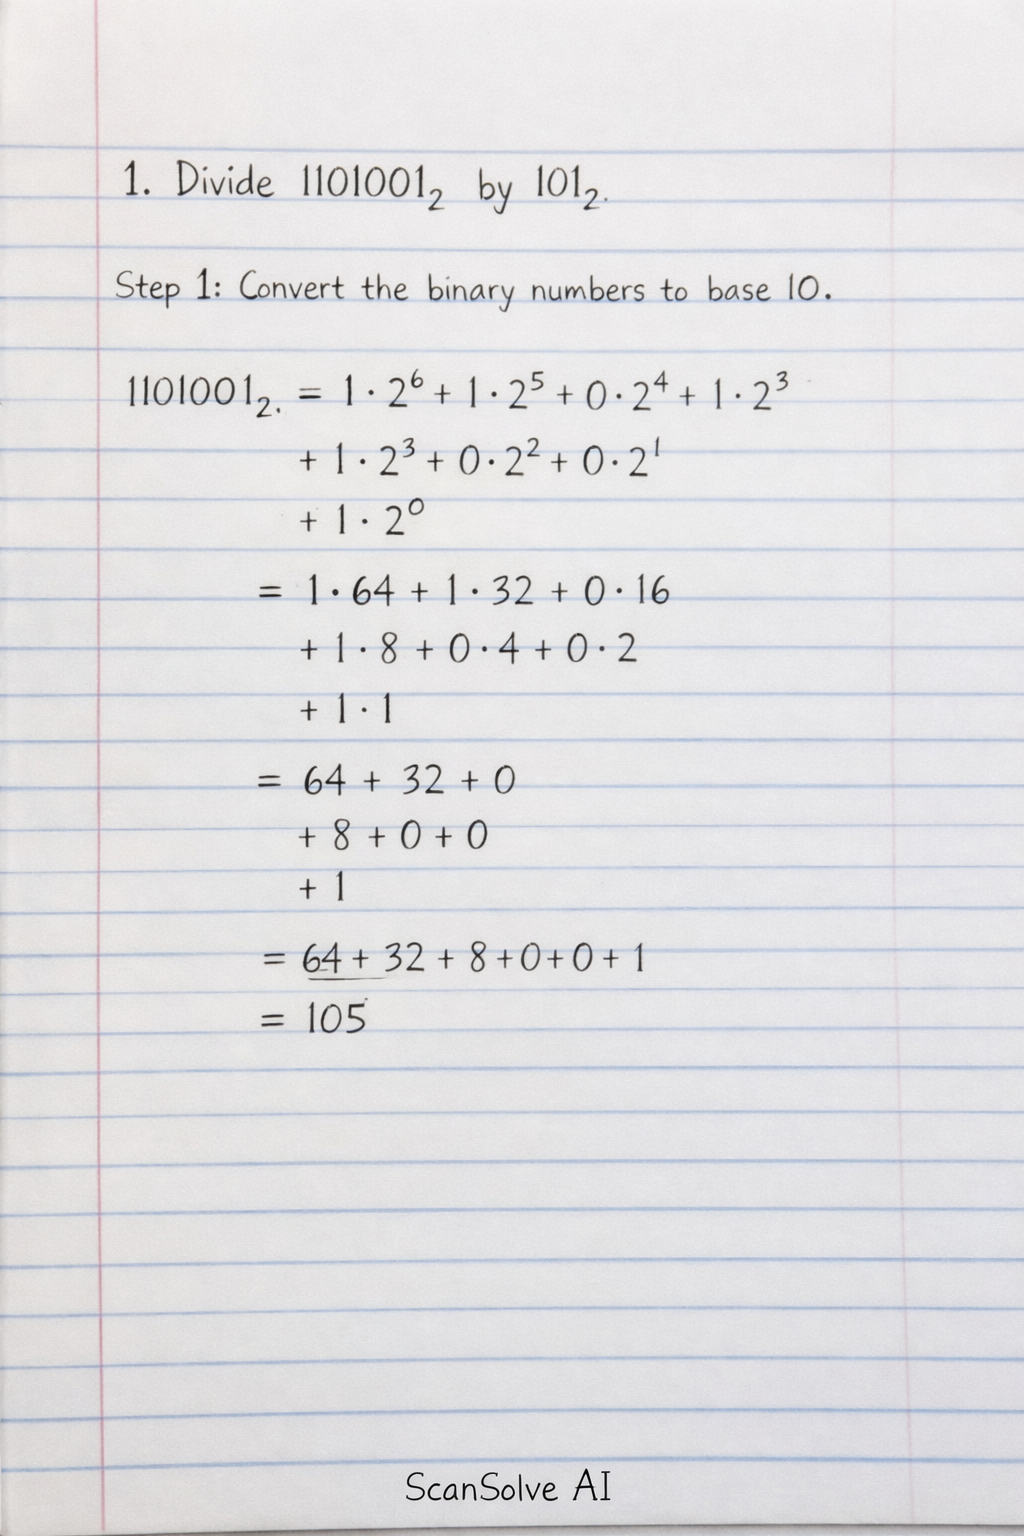 1. Divide 1101001₂ by 101₂.
Step 1: Convert the binary numbers to base 10.
1101001₂. = 1 · 2⁶ + 1 · 2⁵ + 0 · 2⁴ + 1 · 2³
+ 1 · 2³ + 0 · 2² + 0 · 2¹
+ 1 · 2⁰
= 1 · 64 + 1 · 32 + 0 · 16
+ 1 · 8 + 0 · 4 + 0 · 2
+ 1 · 1
= 64 + 32 + 0
+ 8 + 0 + 0
+ 1
= 64 + 32 + 8 + 0 + 0 + 1
= 105
ScanSolve AI